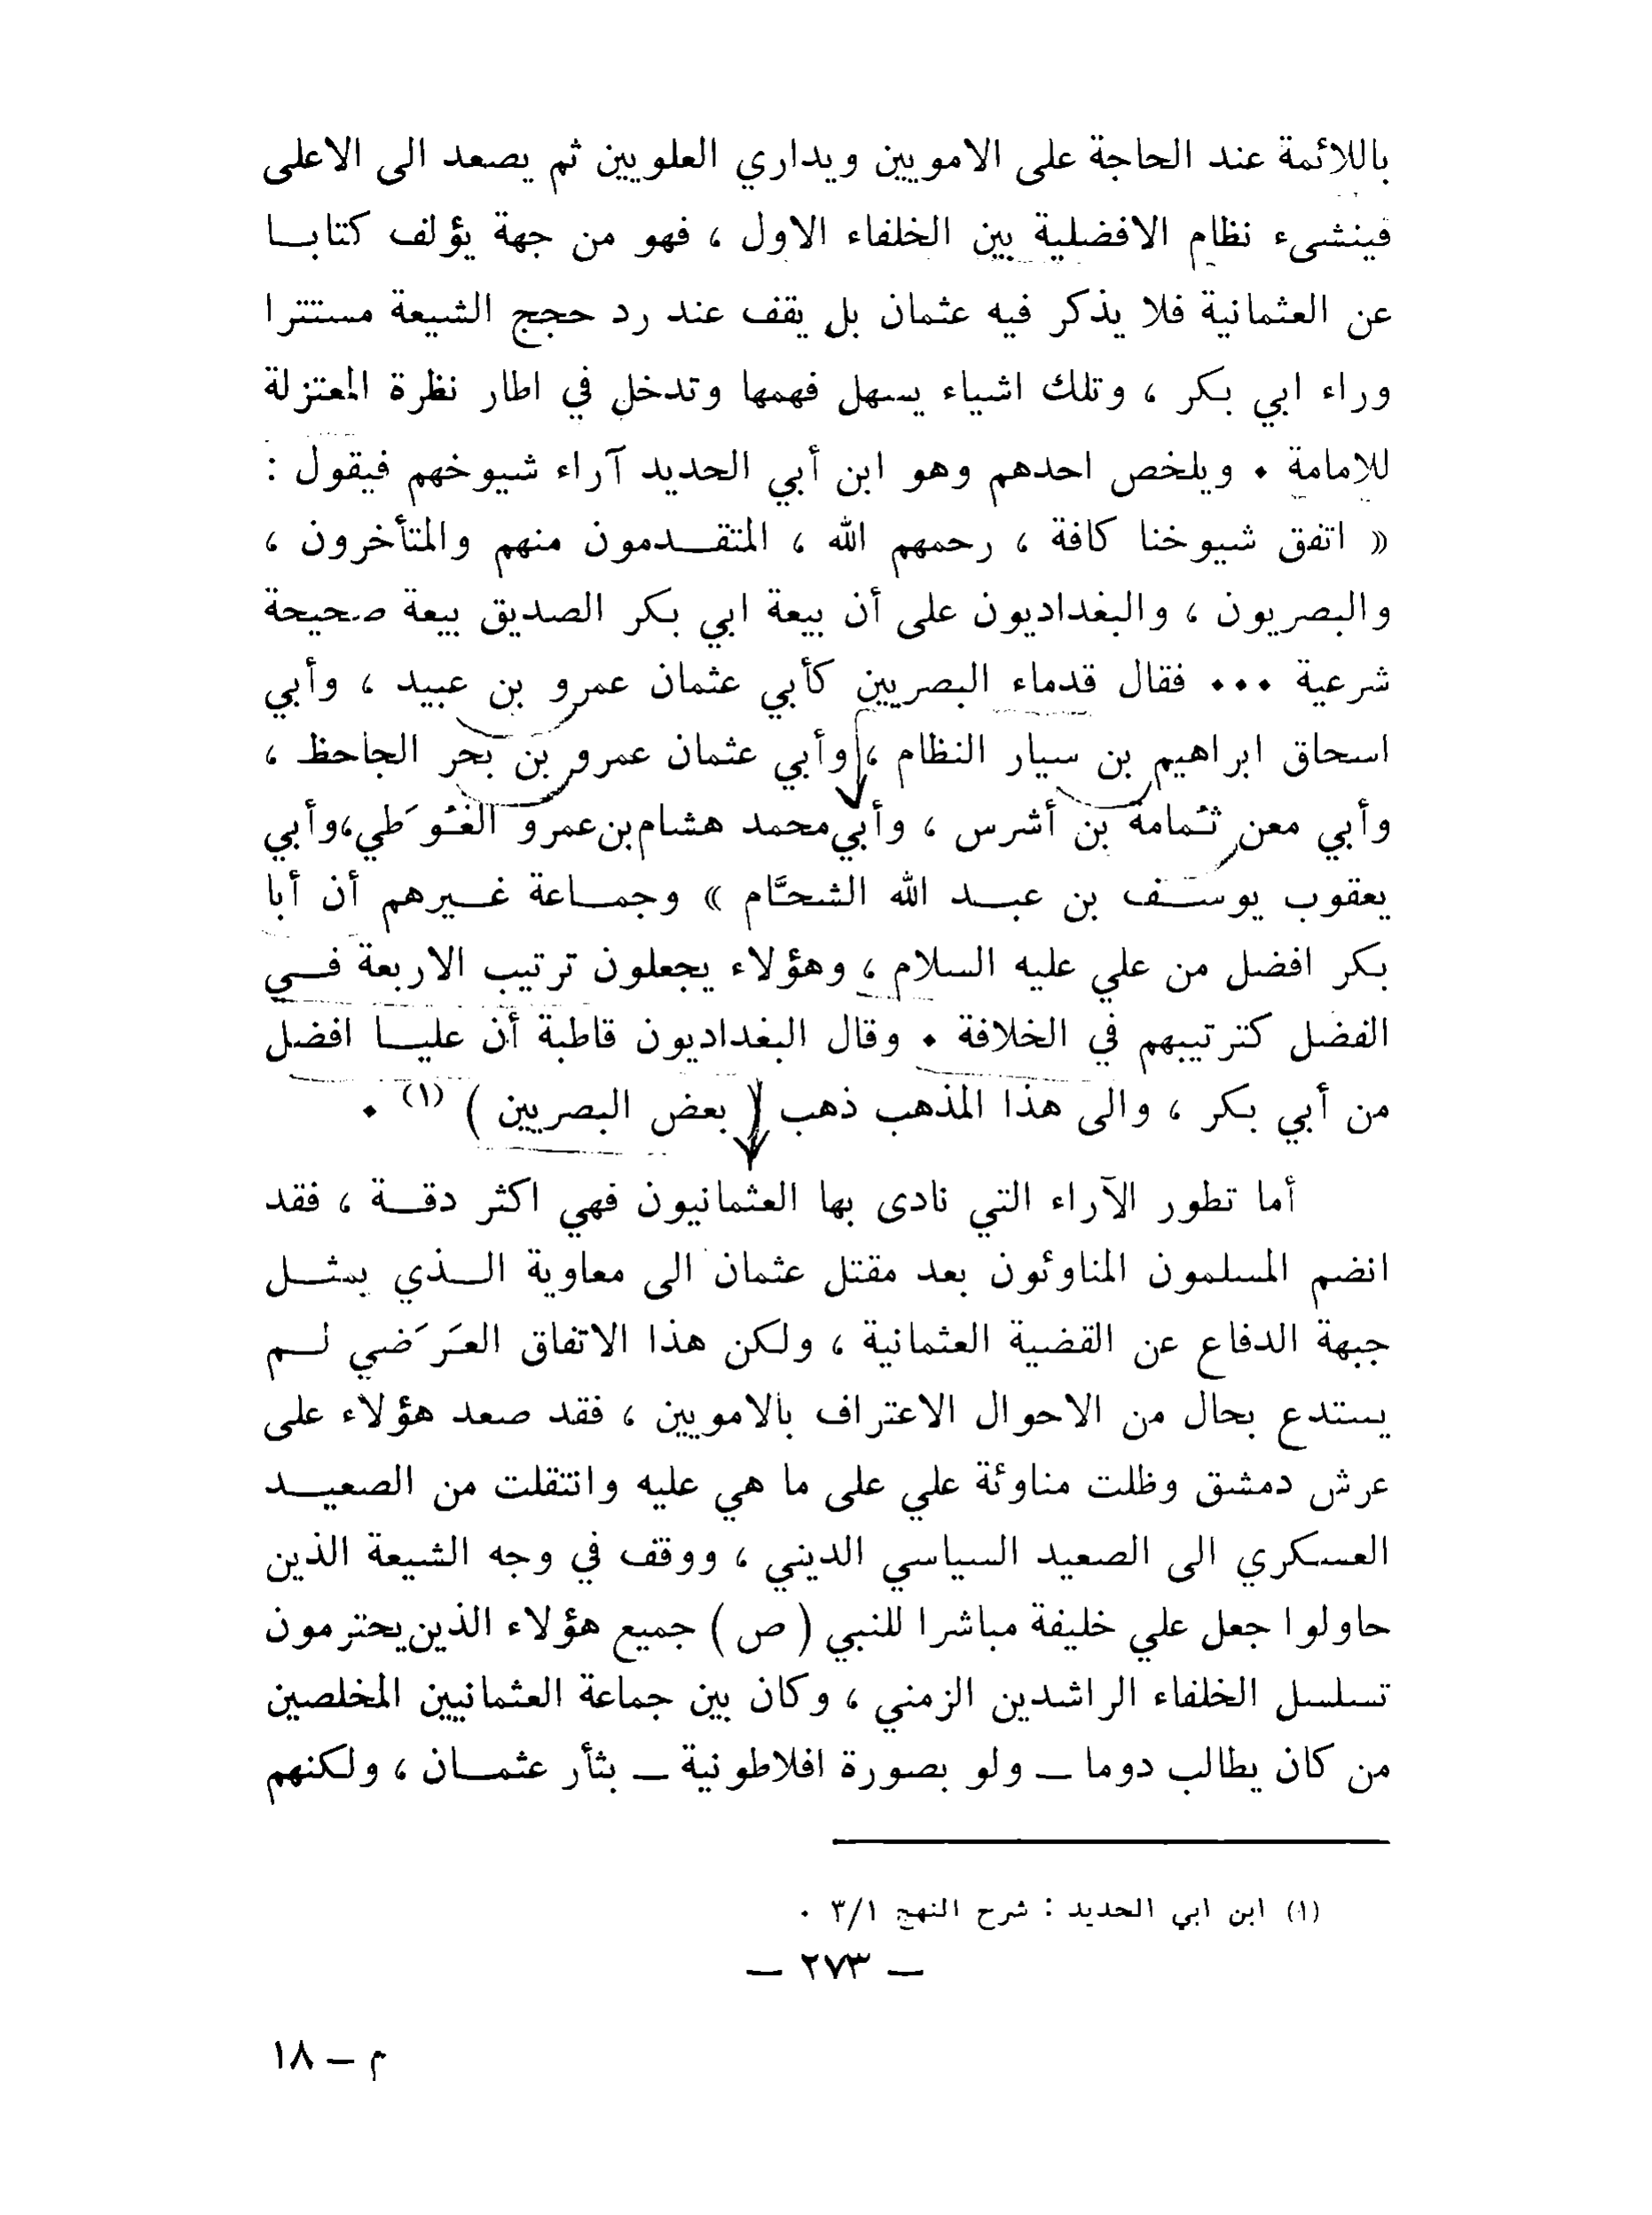 باللائمة عند الحاجة على الامويين ويداري العلويين ثم يصعد الى الاعلى
فينشىء نظام الافضلية بين الخلفاء الاول ، فهو من جهة يؤلف كتابـا
عن العثمانية فلا يذكر فيه عثمان بل يقف عند رد حجج الشيعة مستترا
وراء ابي بكر ، وتلك اشياء يسهل فهمها وتدخل في اطار نظرة المعتزلة
للإمامة . ويلخص احدهم وهو ابن أبي الحديد آراء شيوخهم فيقول :
« اتفق شيوخنا كافة ، رحمهم الله ، المتقـدمون منهم والمتأخرون ،
والبصريون ، والبغداديون على أن بيعة ابي بكر الصديق بيعة صحيحة
شرعية ... فقال قدماء البصريين كأبي عثمان عمرو بن عبيد ، وأبي
اسحاق ابراهيم بن سيار النظام ، وأبي عثمان عمرو بن بحر الجاحظ ،
وأبي معن ثُمامة بن أشرس ، وأبي محمد هشام بن عمرو الفُوَطي، وأبي
يعقوب يوسـف بن عبـد الله الشحَّام » وجمـاعة غـيرهم أن أبا
بكر افضل من علي عليه السلام ، وهؤلاء يجعلون ترتيب الاربعة فـي
الفضل كترتيبهم في الخلافة . وقال البغداديون قاطبة أن عليـا افضل
من أبي بكر ، والى هذا المذهب ذهب ( بعض البصريين ) (١) .
أما تطور الآراء التي نادى بها العثمانيون فهي اكثر دقـة ، فقد
انضم المسلمون المناوئون بعد مقتل عثمان الى معاوية الـذي يمثـل
جبهة الدفاع عن القضية العثمانية ، ولكن هذا الاتفاق العَرَضي لـم
يستدع بحال من الاحوال الاعتراف بالامويين ، فقد صعد هؤلاء على
عرش دمشق وظلت مناوئة علي على ما هي عليه وانتقلت من الصعيـد
العسكري الى الصعيد السياسي الديني ، ووقف في وجه الشيعة الذين
حاولوا جعل علي خليفة مباشرا للنبي ( ص ) جميع هؤلاء الذين يحترمون
تسلسل الخلفاء الراشدين الزمني ، وكان بين جماعة العثمانيين المخلصين
من كان يطالب دوما ــ ولو بصورة افلاطونية ــ بثأر عثمـان ، ولكنهم
(١) ابن ابي الحديد : شرح النهج ٣/١ .
— ٢٧٣ —
م – ١٨